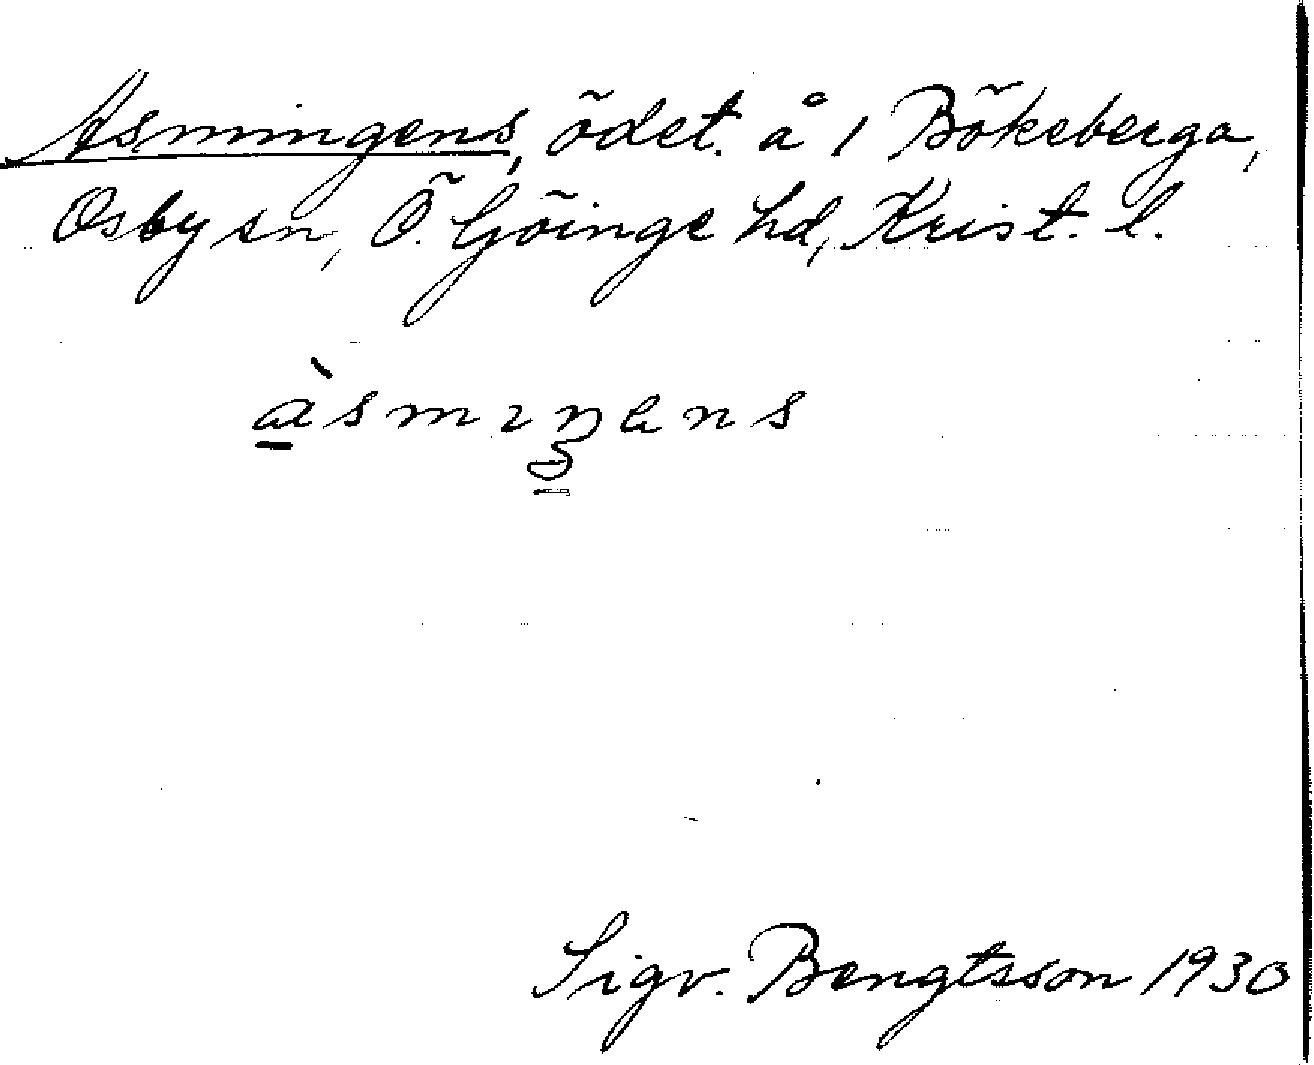 Asmingens, ödet. å 1 Bökeberga,
Osby sn, Ö. Göinge hd, Krist. l.
Sigv. Bengtsson 1930